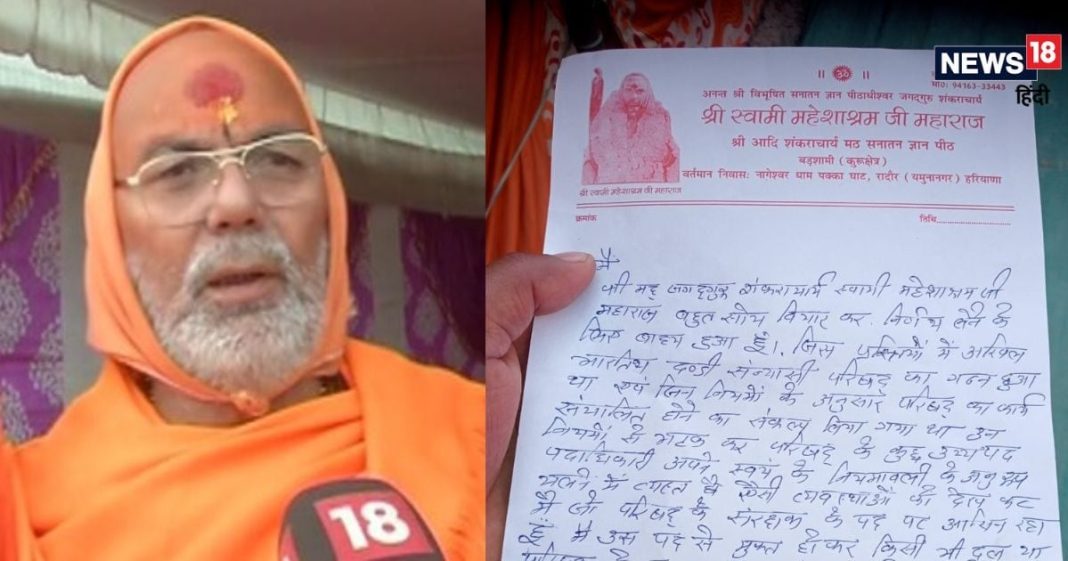 NEWS 18
हिंदी
॥ ॐ ॥
मो0: 94163-33443
अनन्त श्री विभूषित सनातन ज्ञान पीठाधीश्वर जगद्गुरु शंकराचार्य
श्री स्वामी महेशाश्रम जी महाराज
श्री आदि शंकराचार्य मठ सनातन ज्ञान पीठ
बड़शामी (कुरूक्षेत्र)
वर्तमान निवासः नागेश्वर धाम पक्का घाट, रादौर (यमुनानगर) हरियाणा
श्री स्वामी महेशाश्रम जी महाराज
क्रमांक
तिथि
मैं
श्री मद् जगद्गुरू शंकराचार्य स्वामी महेशाश्रम जी
महाराज बहुत सोच विचार कर निर्णय लेने के
लिए बाध्य हुआ हूँ। जिस में अखिल
भारतिय दण्डी संन्यासी परिषद का गठन हुआ
था एवं जिन नियमों के अनुसार परिषद का कार्य
संचालित होने का संकल्प लिया गया था उन
नियमों से भटक कर परिषद के कुछ उच्चपद
पदाधिकारी अपने स्वयं के नियमावली के अनुरूप
चलाने में व्यस्त है ऐसी व्यवस्थाओं को देख कर
मैं जो परिषद के संरक्षक के पद पर आसिन रहा
हूँ मैं उस पद से मुक्त होकर किसी भी दल या
18